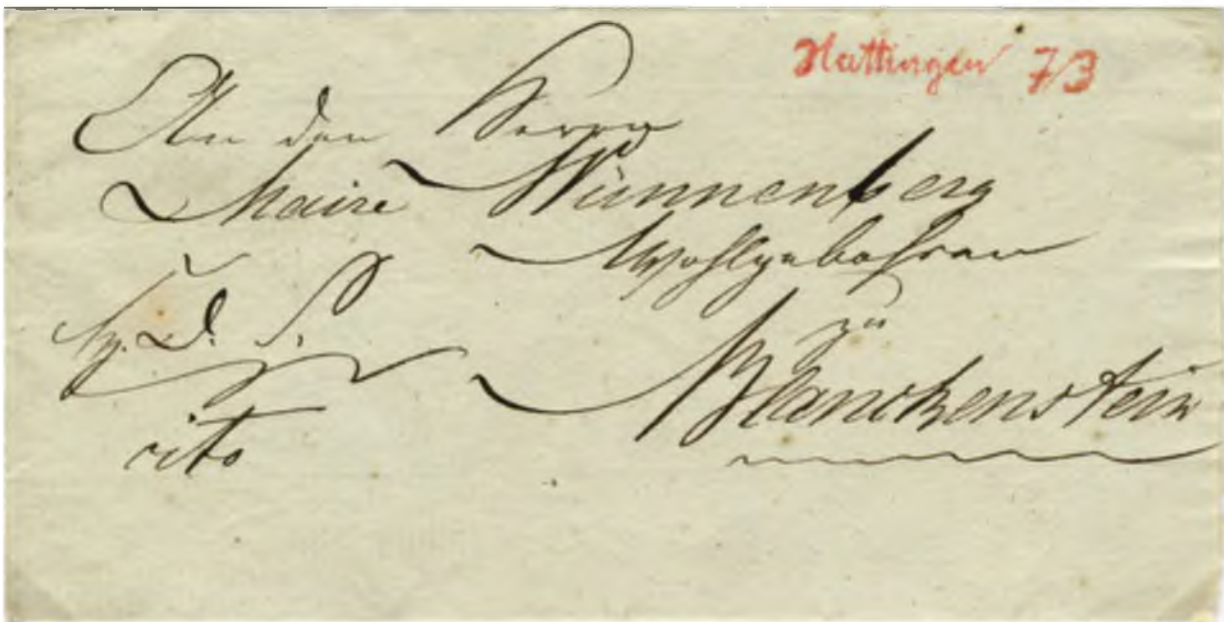 Hattingen 7/3
An den Herrn
Maire Wünnenberg
Wohlgebohren
zu
Blanckenstein
cito